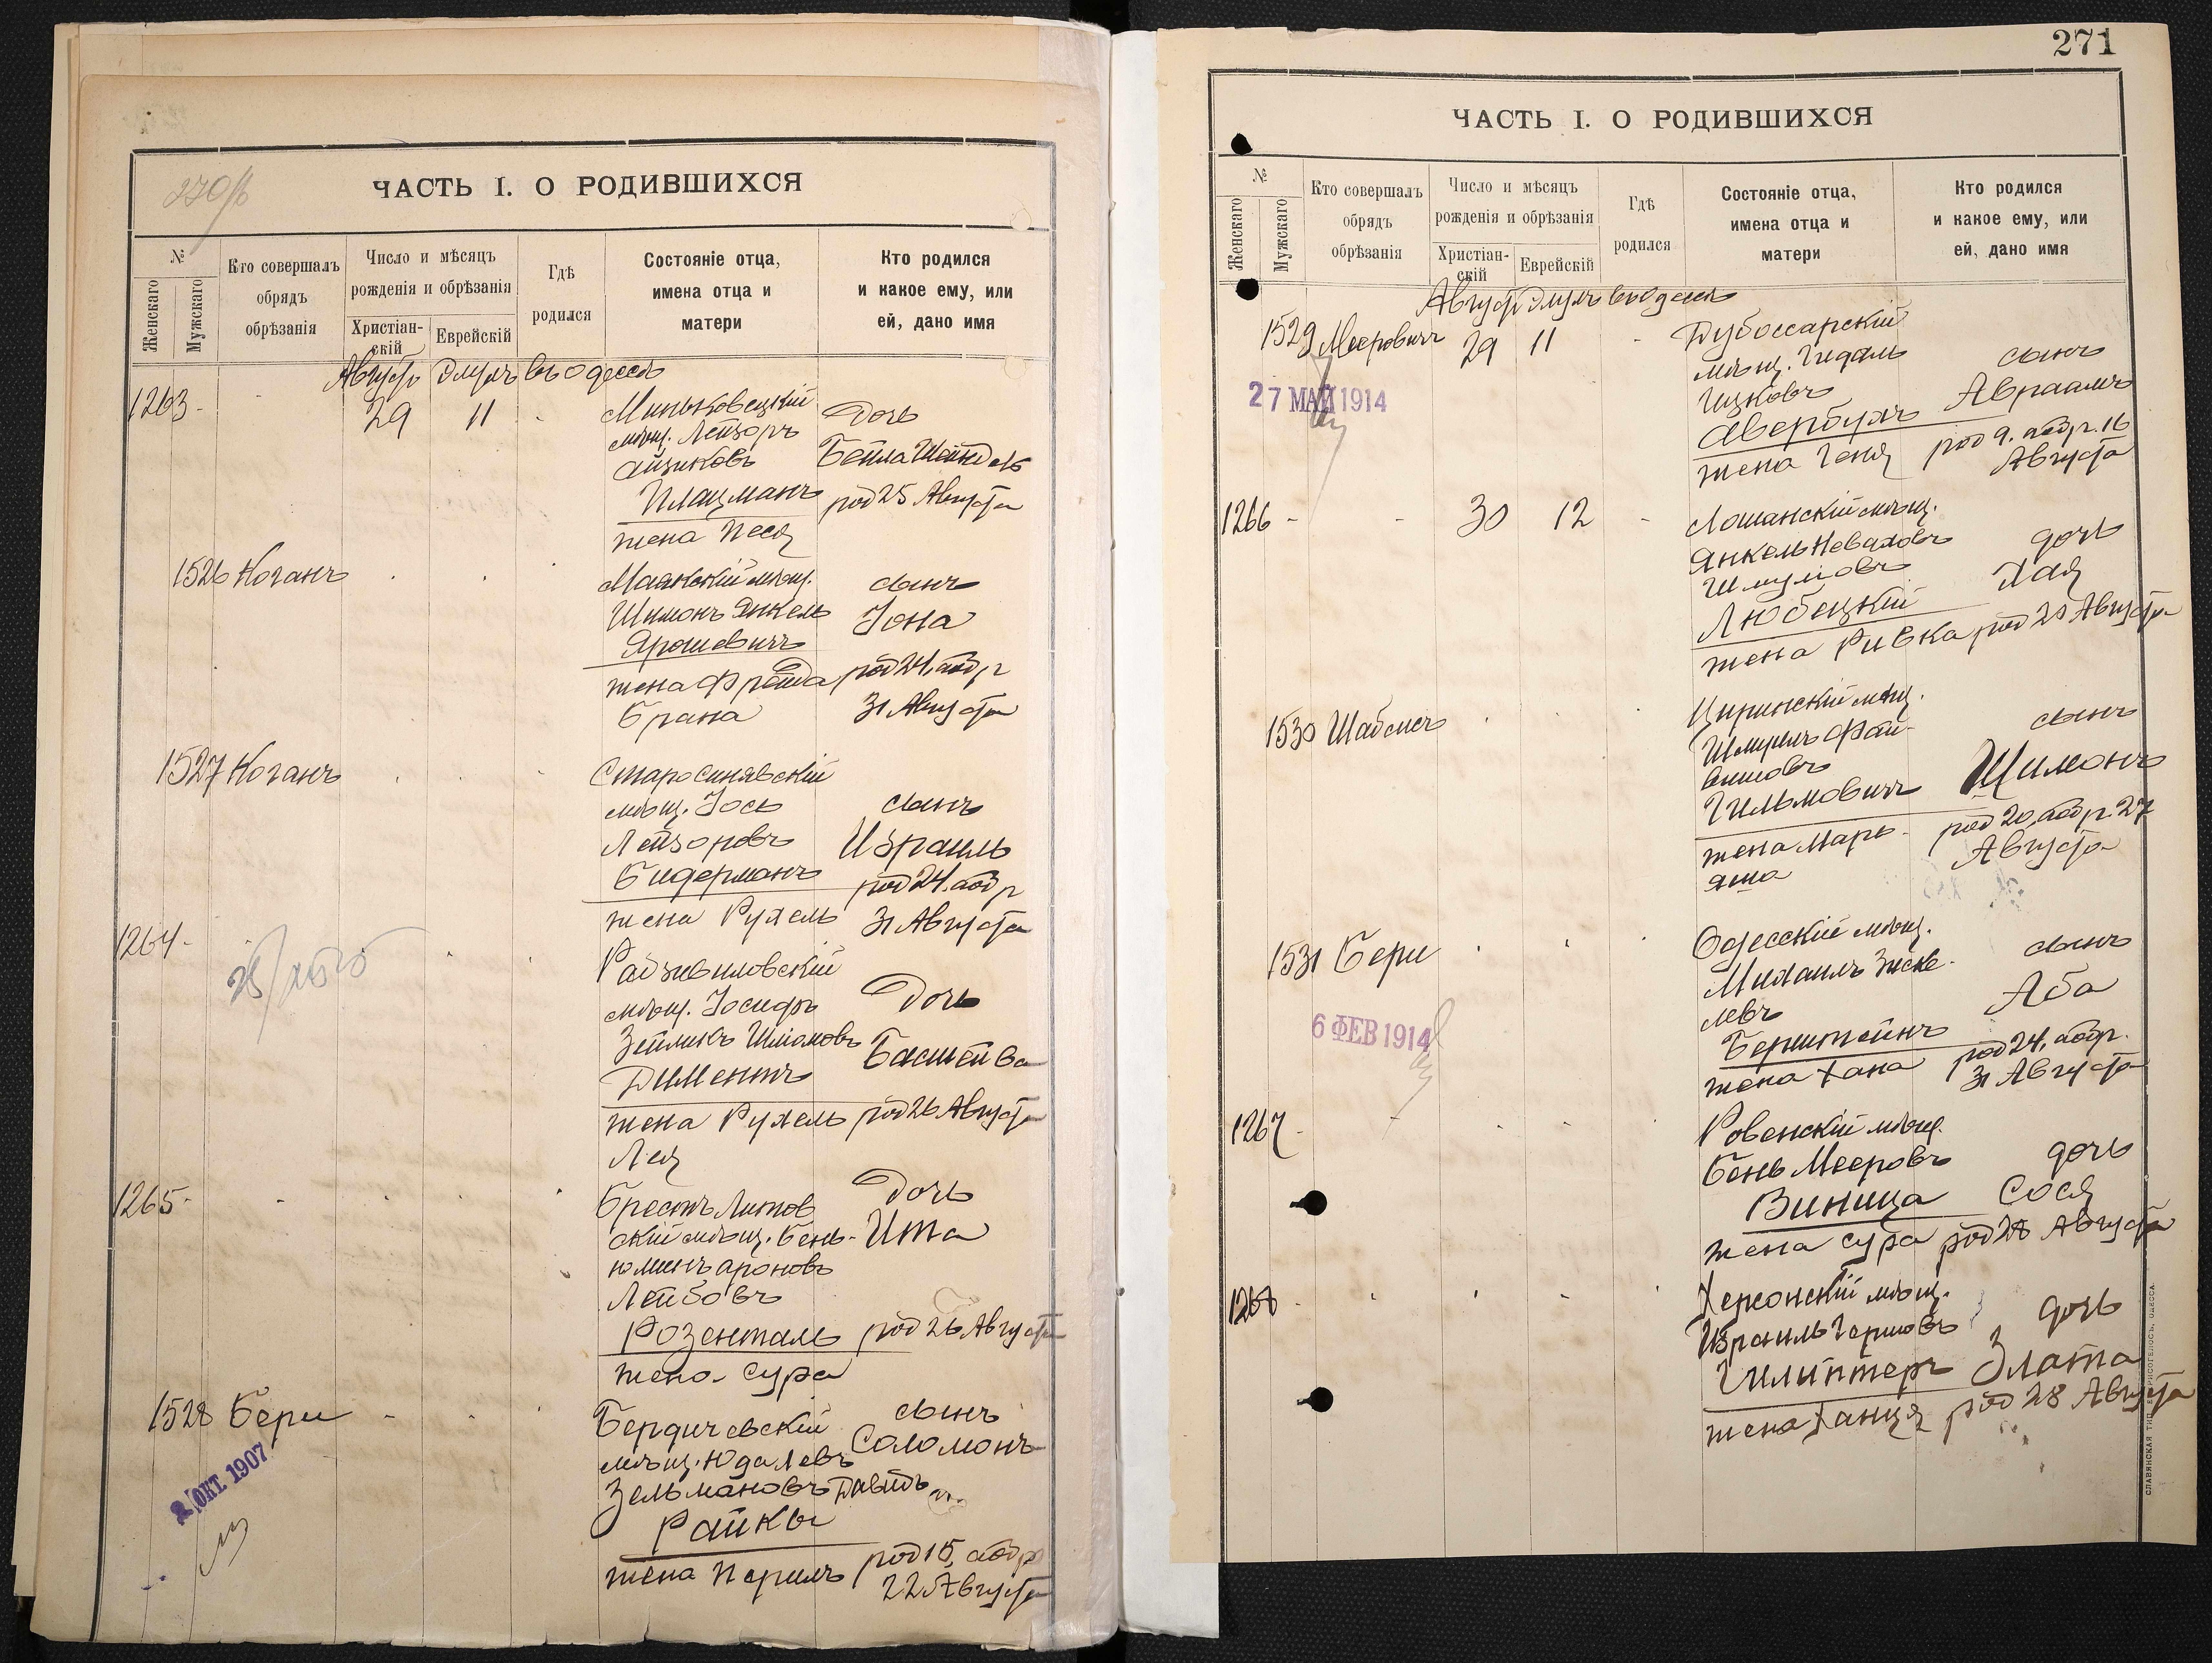 270/б
ЧАСТЬ I. О РОДИВШИХСЯ
№
Женскаго
Мужскаго
Кто совершалъ
обрядъ
обрѣзанія
Число и мѣсяцъ
рожденія и обрѣзанія
Христіан-
скій
Еврейскій
Гдѣ
родился
Состояніе отца,
имена отца и
матери
Кто родился
и какое ему, или
ей, дано имя
Августъ Элулъ въ Одессѣ
1263 - 29 11
Миньковецкій
мѣщ. Лейзоръ
Айзиковъ
Плацманъ
жена Песя
Дочь
Бейла Шейндель
род 25 Августа
1526 Коганъ
Маякскій мѣщ.
Шимонъ Янкель
Ярошевичъ
жена Фрейда
Брана
сынъ
Іона
род 24, обр
31 Августа
1527 Коганъ
Старосинявскій
мѣщ. Іось
Лейзоровъ
Бидерманъ
жена Рухель
сынъ
Израиль
род 24. обр
31 Августа
1264 -
Радзивиловскій
мѣщ. Іосифъ
Зейликъ Шліомовъ
Диментъ
жена Рухель
Лея
Дочь
Басшейва
род 26 Августа
1265 -
Брестъ Литов
скій мѣщ. Бень-
юминъ Ароновъ
Лейбовъ
Розенталь
жена Сура
Дочь
Ита
род 26 Августа
1528 Бери
2 ОКТ. 1907
Бердичевскій
мѣщ. Юда Левъ
Зельмановъ
Райкы
жена Перилъ
сынъ
Соломонъ
Давидъ
род 15, обр
22 Августа
271
ЧАСТЬ I. О РОДИВШИХСЯ
№
Женскаго
Мужскаго
Кто совершалъ
обрядъ
обрѣзанія
Число и мѣсяцъ
рожденія и обрѣзанія
Христіан-
скій
Еврейскій
Гдѣ
родился
Состояніе отца,
имена отца и
матери
Кто родился
и какое ему, или
ей, дано имя
Августъ Элулъ въ Одессѣ
1529 Мееровичъ 29 11
27 МАЙ 1914
Дубоссарскій
мѣщ. Гидаль
Ицковъ
Авербухъ
жена Геня
сынъ
Авраамъ
род 9. обр. 16
Августа
1266 - - 30 12 -
мѣщ.
Янкель
Шмулиовъ
Любецкій
жена Ривка
дочь
Хая
род 28 Августа
1530 Шабсисъ
Циринскій мѣщ.
Шмуилъ Фай-
вишовъ
Гильмовичъ
жена Марь-
яша
сынъ
Шимонъ
род 20, обр. 27
Августа
1531 Бери
6 ФЕВ 1914
Одесскій мѣщ.
Михаилъ Зиске-
левъ
Бернштейнъ
жена Хана
сынъ
Аба
род 24, обр.
31 Августа
1267 -
Ровенскій мѣщ.
Бень Мееровъ
Виница
жена Сура
дочь
Сося
род 28 Августа
1268 -
Херсонскій мѣщ.
Израиль Гершовъ
жена Ханця
дочь
Злата
род 28 Августа
СЛАВЯНСКАЯ ТИП. Е. ХРИСОГЕЛОСЪ, ОДЕССА.